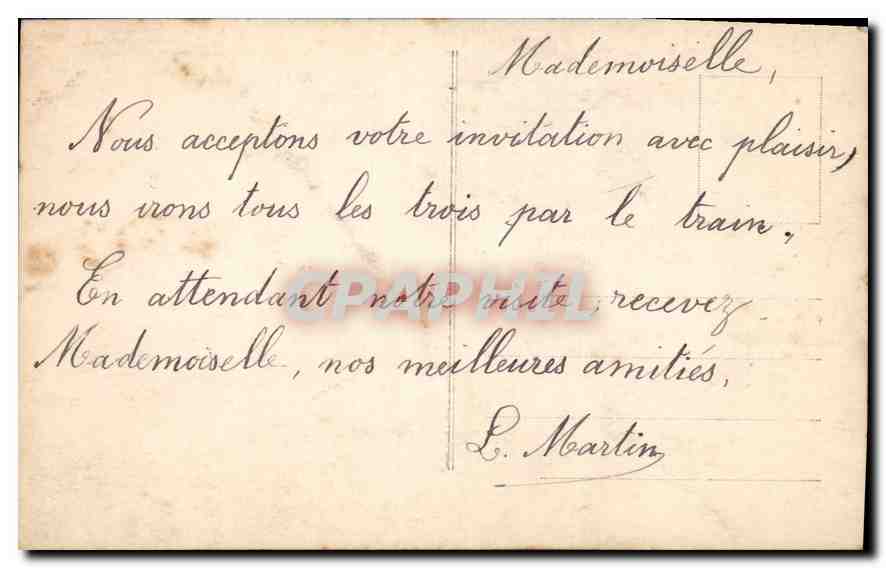 Mademoiselle,
Nous acceptons votre invitation avec plaisir,
nous irons tous les trois par le train.
En attendant notre visite, recevez
Mademoiselle, nos meilleures amitiés,
L. Martin
CPAPHIL